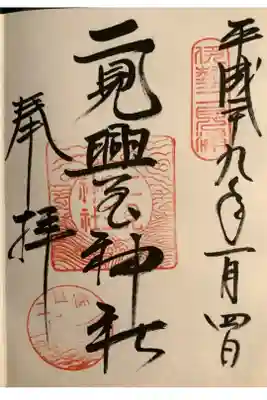 平成十九年一月四日
二見興玉神社
奉拝